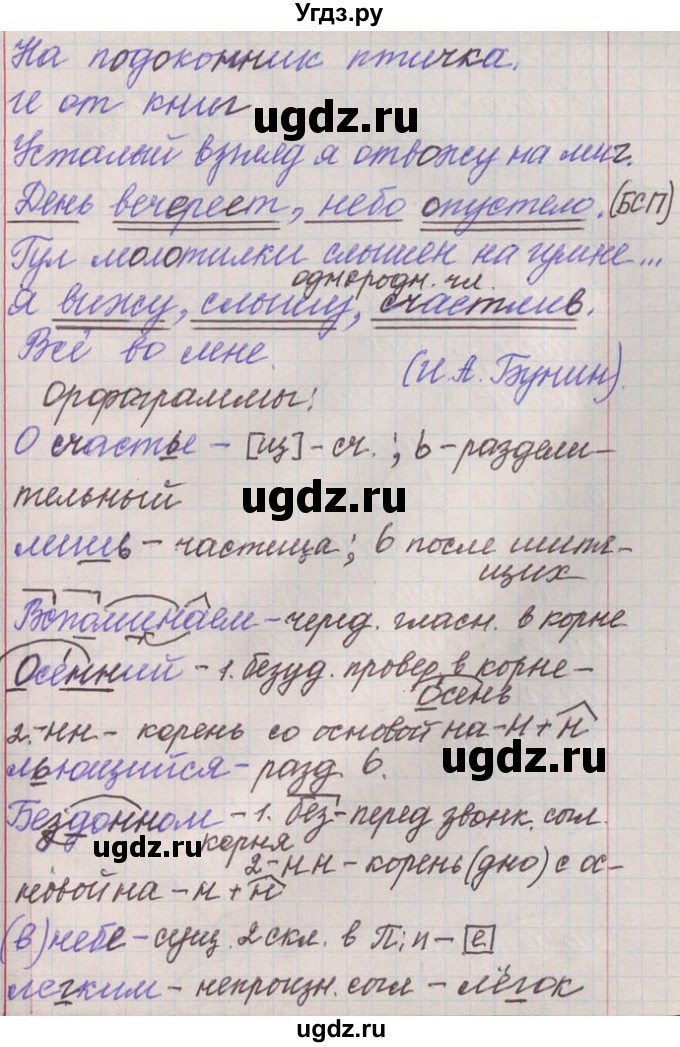 Угдз.ру
На подоконник птичка.
ге от книг
ugdz.ru
Усталый взгляд я отвожу на миг.
День вечереет, небо опустело. (БСП)
Гул молотилки слышен на гумне...
однородн. чл.
Я вижу, слышу, счастлив.
Всё во мне.
(И.А. Бунин).
Орфограммы:
О счастье - [щ] - сч. ; ь - раздели-
ugdz.ru
тельный
лишь - частица ; ь после шипя-
щих
Вспоминаем - черед. гласн. в корне
Осенний - 1. безуд. провер. в корне -
осень
2. -нн- корень со основой на -н + н
льющийся - разд. ь.
Бездонном - 1. без- перед звонк. сыл.
ugdz.ru
корня
2 - нн - корень (дно) с ос-
новой на - н + н
(в) небе - сущ. 2 скл. в П; п - е
легким - непроизн. сыл - лёгок
ugdz.ru